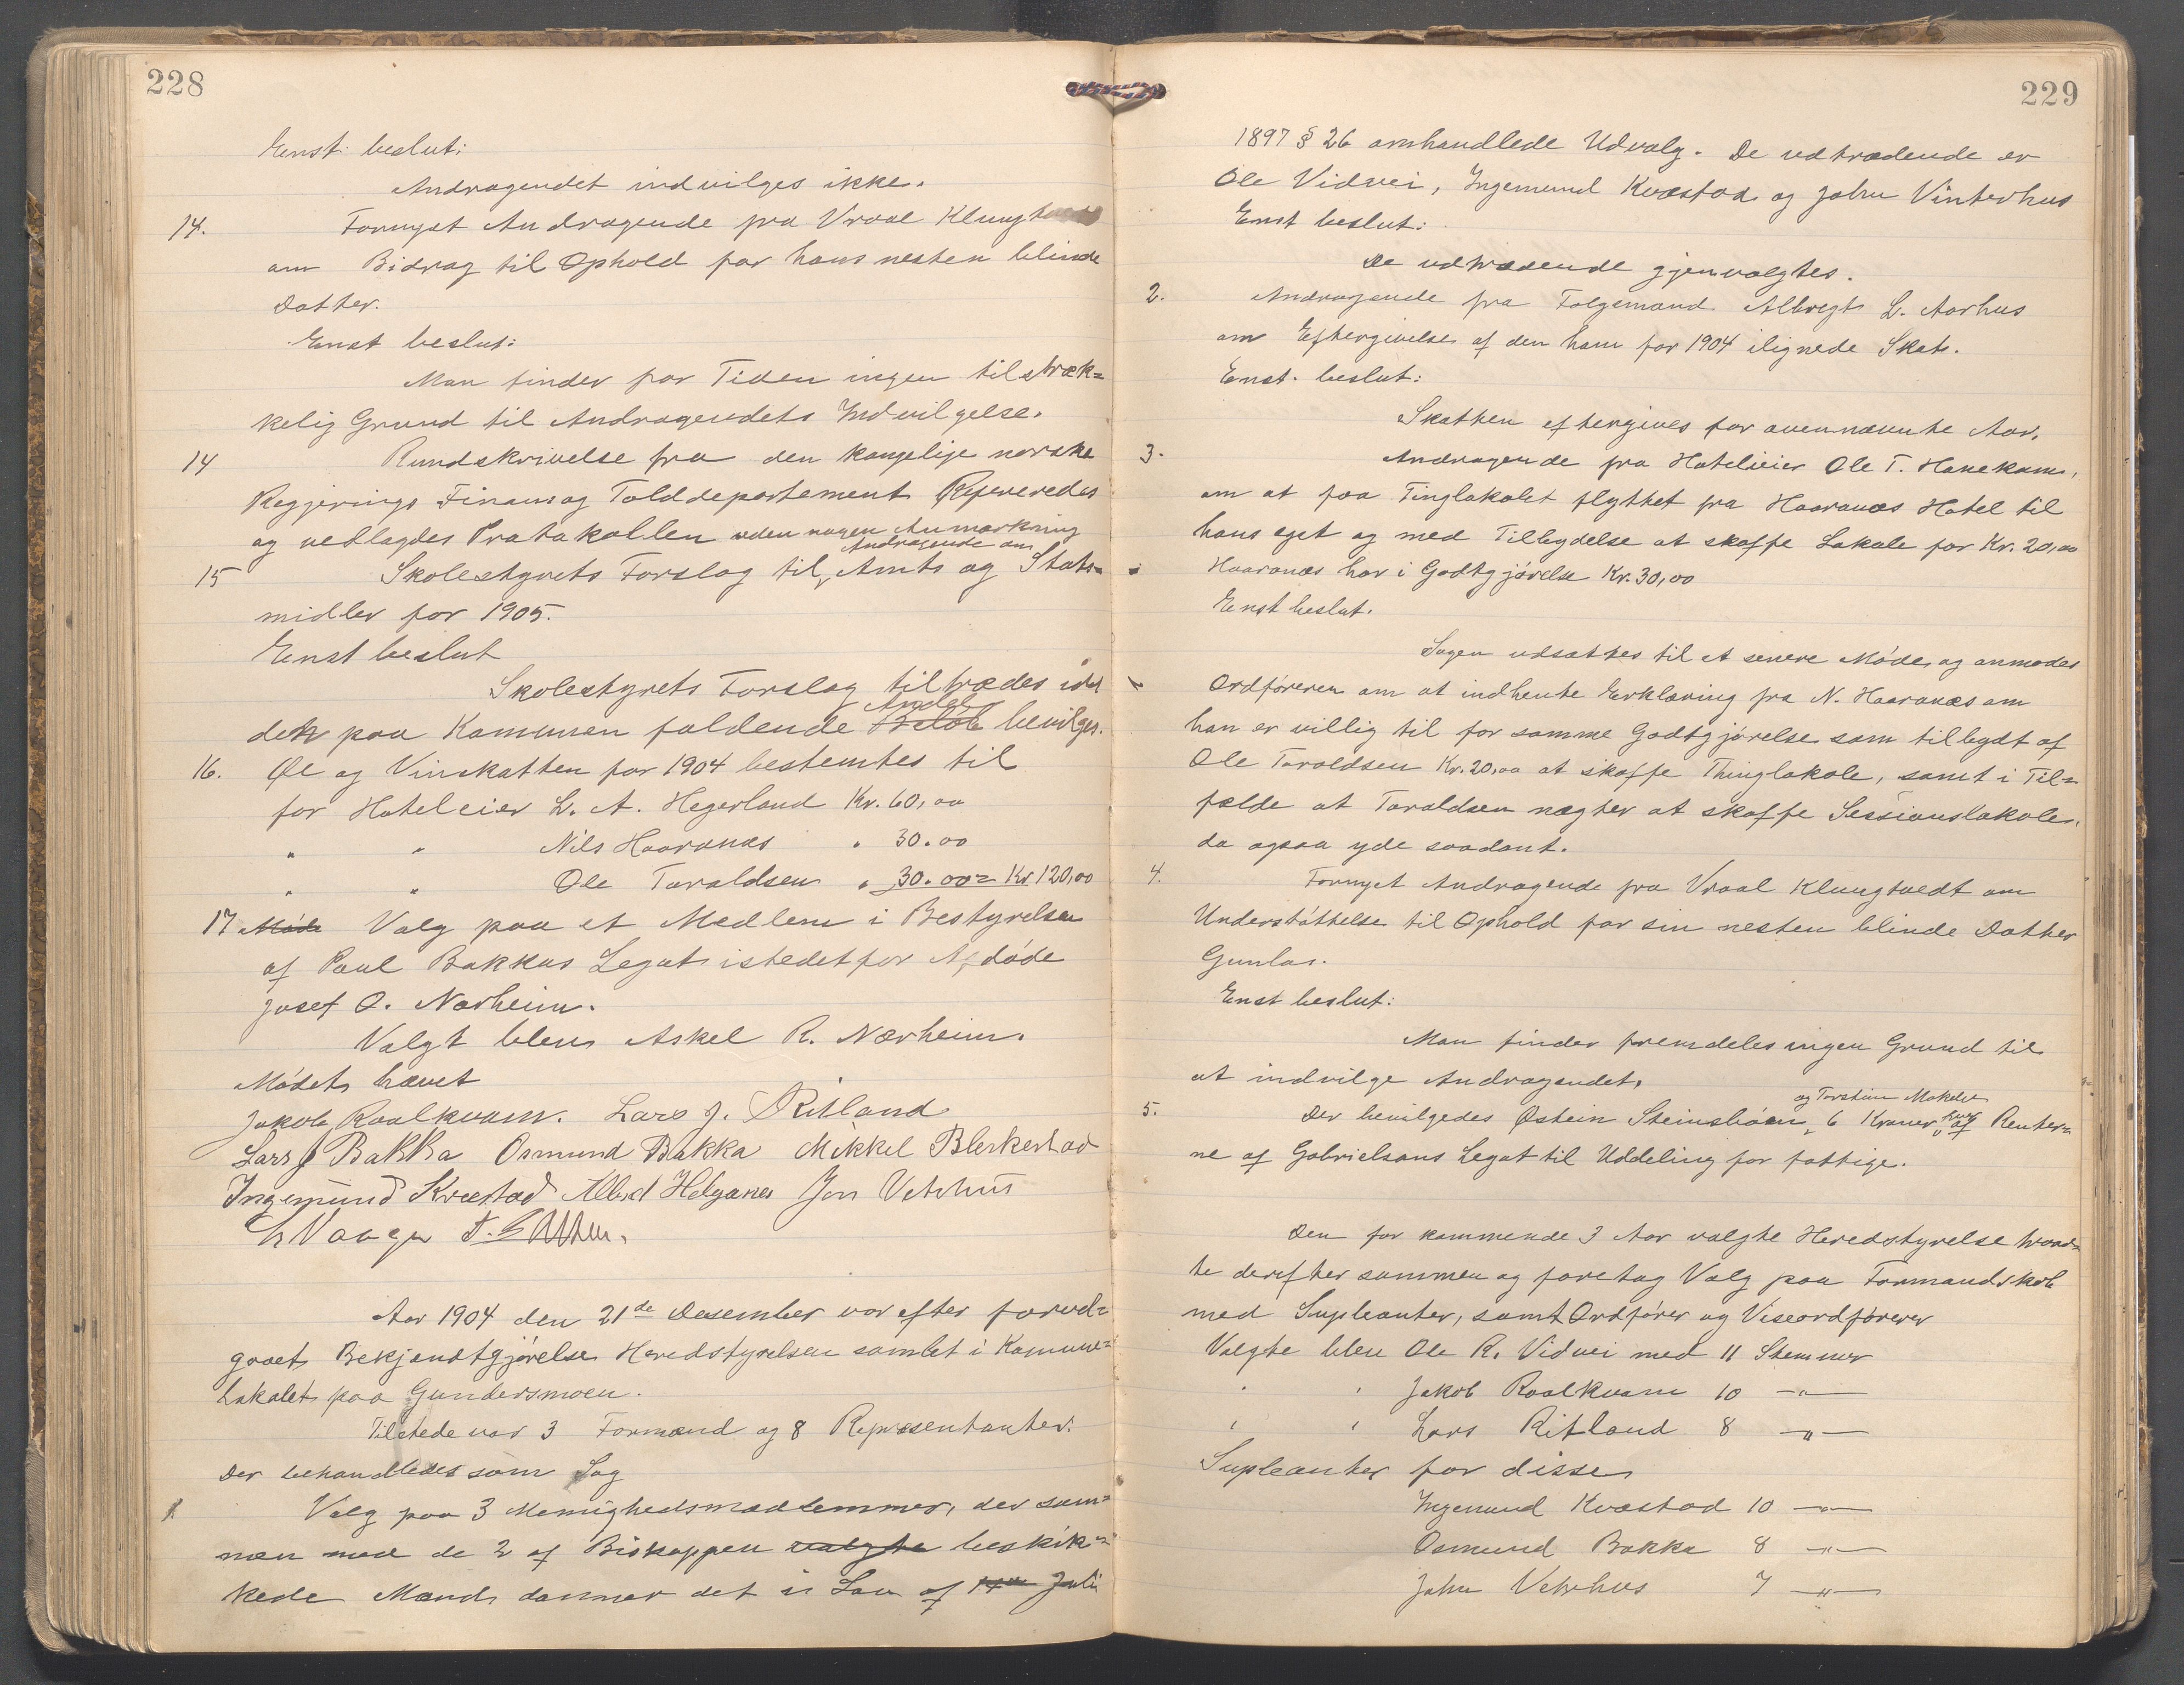 228
Enst. beslut:
Andragendet indvilges ikke.
14. Fornyet Andragende fra Vraal Klungtvedt
om Bidrag til Ophold for hans nesten blinde
Datter.
Enst beslut:
Man finder for Tiden ingen tilstræk=
kelig Grund til Andragendets Indvilgelse.
14 Rundskrivelse fra den kongelige norske
Regjerings Finans og Tolddepartement Refereredes
og vedlagdes Protokollen uden nogen Anmærkning
Andragende om
15 Skolestyrets Forslag til Amts og Stats=
midler for 1905.
Enst beslut
Skolestyrets Forslag tiltrædes idet
Andel
den paa Komunen faldende Beløb bevilges.
16. Øl og Vinskatten for 1904 bestemtes til
for Hoteleier L. A. Hegerland Kr. 60,00
" " Nils Haaranæs " 30.00
" " Ole Taraldsen " 30.00 = Kr. 120,00
17 Møde Valg paa et Medlem i Bestyrelsen
af Paul Bakkas Legat istedetfor Afdøde
Josef O. Nærheim.
Valgt blev Askel R. Nærheim.
Mødet hævet
Jakob Roalkvam. Lars J. Ritland
Lars J Bakka Osmund Bakka Mikkel Bleskestad
Ingemund Kvæstad Albert Helganes Jon Vetrhus
Aar 1904 den 21de Desember var efter forud=
gaaet Bekjendtgjørelse Heredstyrelsen samlet i Kommune=
Lokalet paa Gundersmoen.
Tilstede var 3 Formænd og 8 Repræsentanter.
Der behandledes som Sag
1 Valg paa 3 Menighedsmedlemmer, der sam=
men med de 2 af Biskoppen valgte beskik=
kede Mænd danner det i Lov af Juli
229
1897 § 26 omhandlede Udvalg. De udtrædende er
Ole Vidvei, Ingemund Kvæstad og John Vinterhus
Enst beslut:
De udtrædende gjenvalgtes.
2. Andragende fra Folgemand Albregt L. Aarhus
om Eftergivelse af den ham for 1904 ilignede Skat.
Enst. beslut:
Skatten eftergives for ovennævnte Aar.
3. Andragende fra Hoteleier Ole T. Hanekam,
om at faa Tinglokalet flyttet fra Haaranæs Hotel til
hans eget og med Tilbydelse at skaffe Lokale for Kr. 20,00
Haaranæs har i Godtgjørelse Kr. 30,00
Enst beslut.
Sagen udsættes til et senere Møde, og anmodes
Ordføreren om at indhente Erklæring fra N. Haaranæs om
han er villig til for samme Godtgjørelse som tilbydt af
Ole Taraldsen Kr. 20,00 at skaffe Thinglokale, samt i Til=
fælde at Taraldsen nægter at skaffe Sessionslokale,
da ogsaa yde saadant.
4. Fornyet Andragende fra Vraal Klungtvedt om
Understøttelse til Ophold for sin nesten blinde Datter
Gunla.
Enst beslut:
Man finder fremdeles ingen Grund til
at indvilge Andragendet.
og Torstein Mokelei
5. Der bevilgedes Østein Steinsbøen, 6 Kroner hver af Renter=
ne af Gabrielsens Legat til Uddeling for fattige.
Den for kommende 3 Aar valgte Heredstyrelse traad=
te derefter sammen og foretog Valg paa Formandskab
med Supleanter, samt Ordfører og Viseordfører
Valgte blev Ole R. Vidvei med 11 Stemmer
" " Jakob Roalkvam 10 —"—
" " Lars Ritland 8 —"—
Supleanter for disse
Ingemund Kvæstad 10 —"—
Osmund Bakka 8 —"—
John Vetrhus 7 —"—